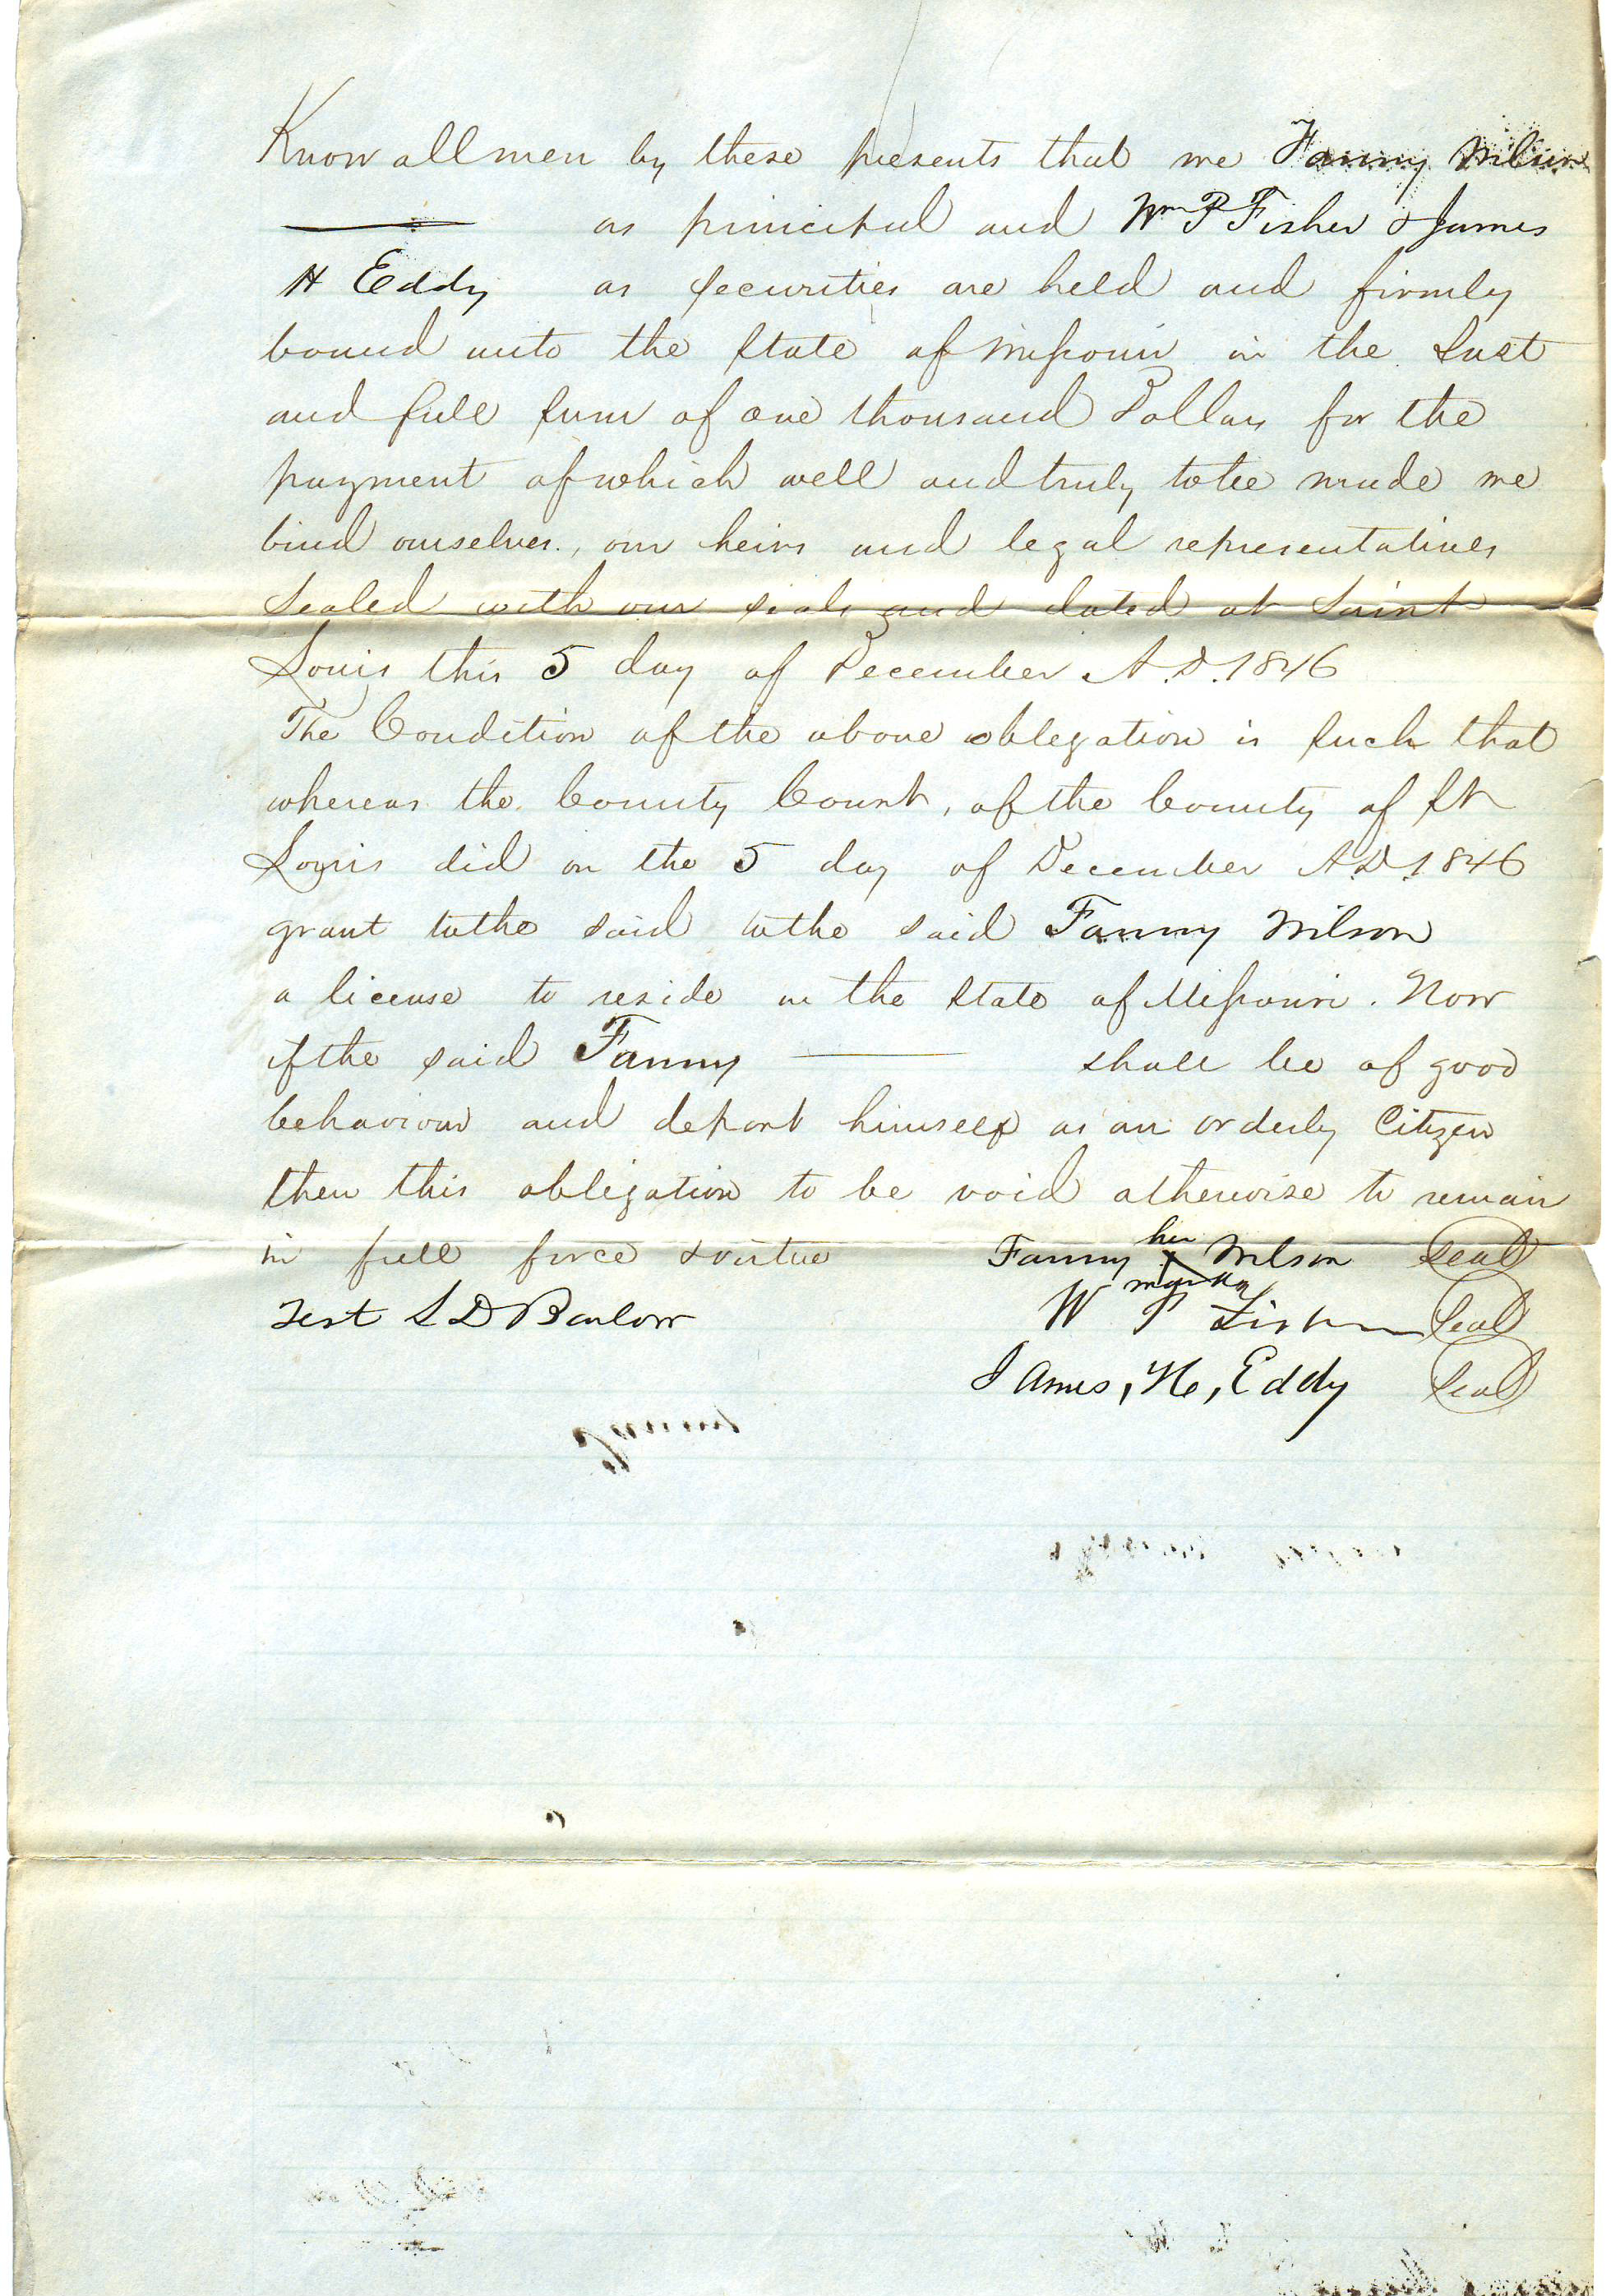 Know all men by these presents that we Fanny Wilson
as principal and Wm P Fisher & James
H Eddy as securities are held and firmly
bound unto the State of Missouri in the Just
and full sum of one thousand Dollars for the
payment of which well and truly to be made we
bind ourselves, our heirs and legal representatives
Sealed with our seals and dated at Saint
Louis this 5 day of December A.D. 1846
The Condition of the above oblegation is such that
whereas the County Court, of the County of St
Louis did on the 5 day of December A.D. 1846
grant to the said to the said Fanny Wilson
a license to reside in the State of Missouri. Now
if the said Fanny shall be of good
behaviour and deport himself as an orderly Citizen
then this obligation to be void otherwise to remain
in full force & virtue Fanny her x mark Wilson Seal
Test S D Barlow W P Fisher Seal
James, H, Eddy Seal